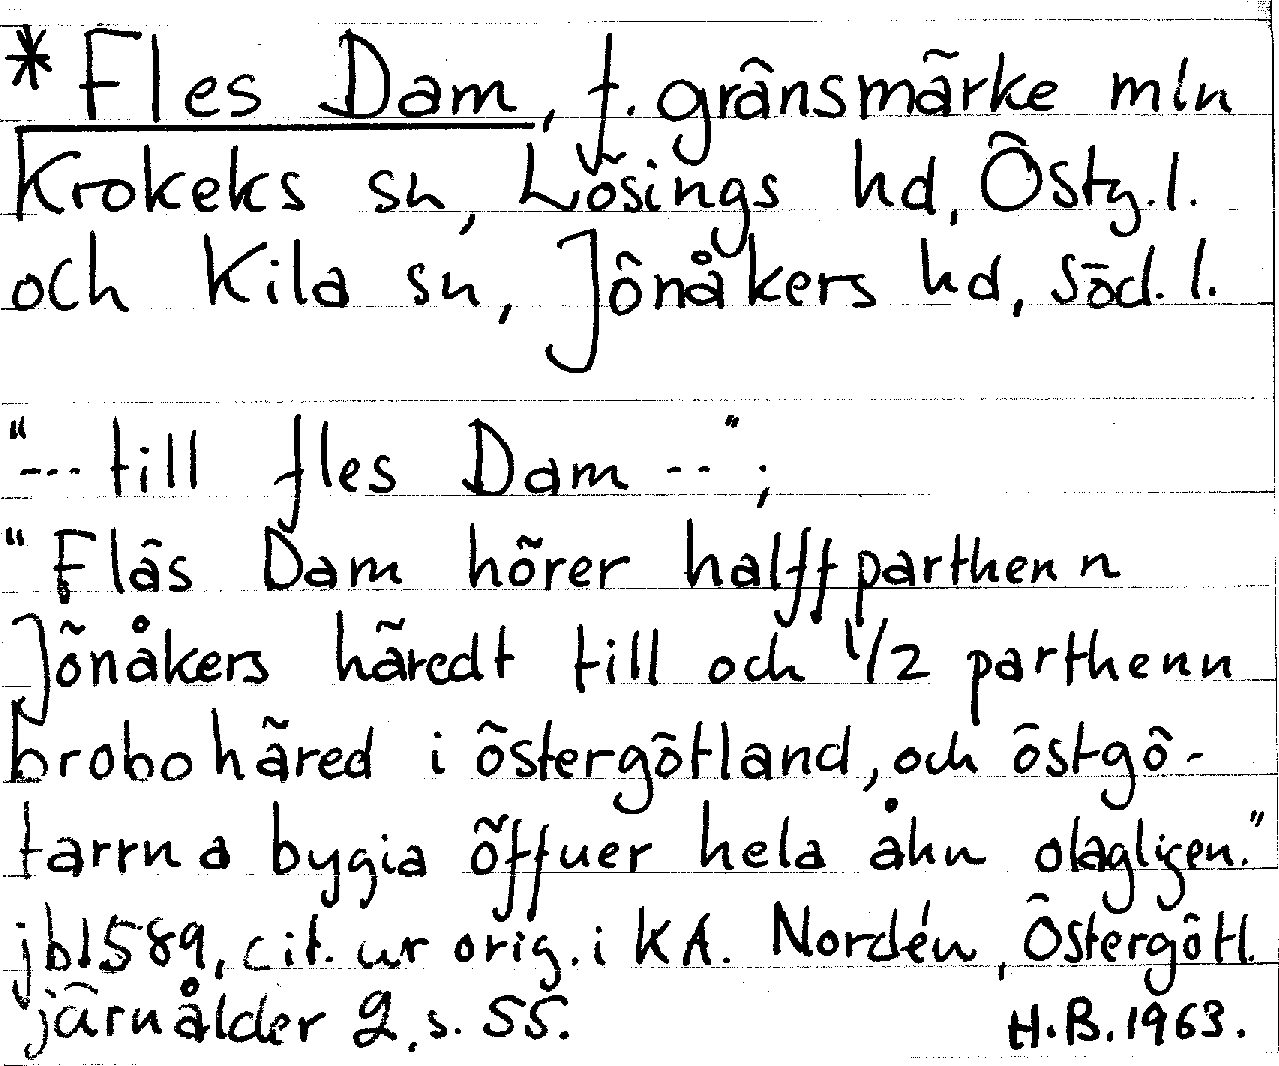 *Fles Dam, f. gränsmärke mln
Krokeks sn, Lösings hd, Östg. l.
och Kila sn, Jönåkers hd, Söd. l.
"--- till fles Dam --";
"Fläs Dam hörer halffparthenn
Jönåkers häredt till och 1/2 parthenn
brobohäred i östergötland, och östgö-
tarrna bygia öffuer hela åhn olagligen."
jb1589, cit. ur orig. i KA. Nordén, Östergötl.
järnålder 2, s. 55. H.B. 1963.